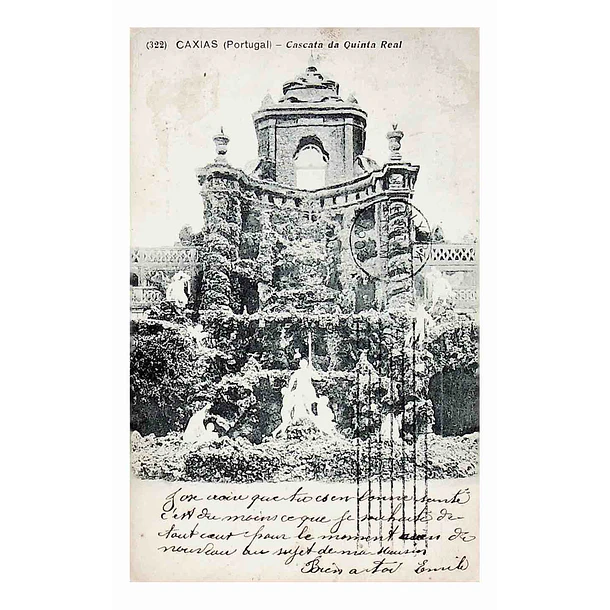 (322) CAXIAS (Portugal) – Cascata da Quinta Real
J'ose croire que tu es en bonne santé
c'est du moins ce que je souhaite de
tout cœur pour le moment rien de
nouveau au sujet de ma
Bien a toi Emile